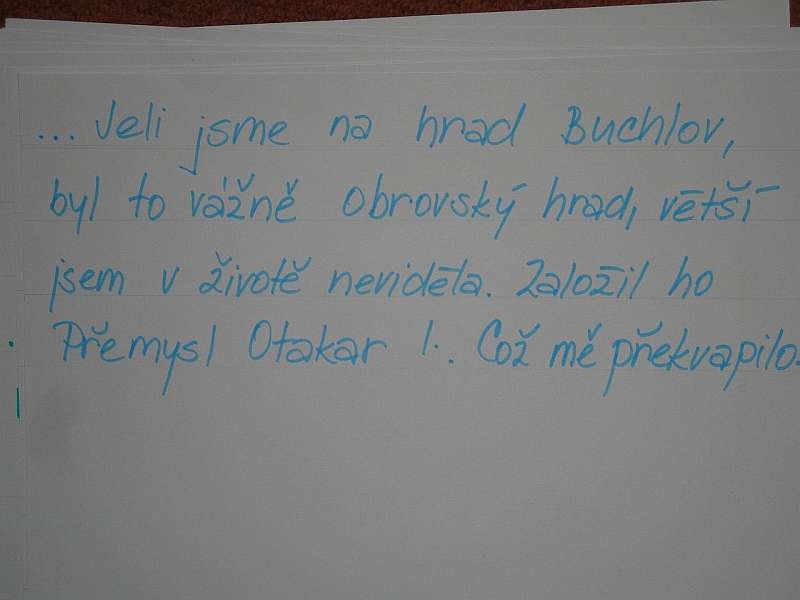 ... Jeli jsme na hrad Buchlov,
byl to vážně obrovský hrad, větší
jsem v životě neviděla. Založil ho
Přemysl Otakar I.. Což mě překvapilo.